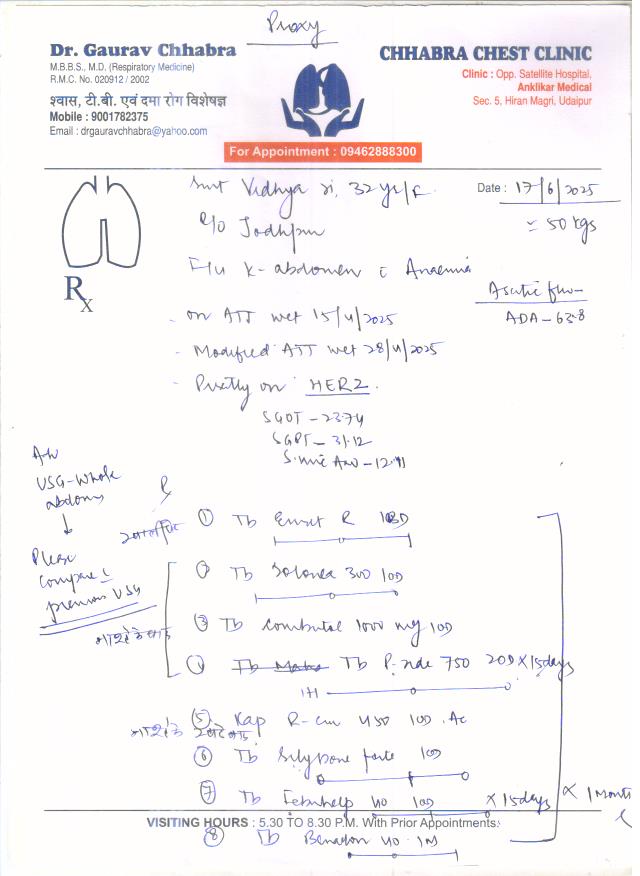 Proxy
Dr. Gaurav Chhabra
M.B.B.S., M.D. (Respiratory Medicine)
R.M.C. No. 020912 / 2002
श्वास, टी.बी. एवं दमा रोग विशेषज्ञ
Mobile : 9001782375
Email : drgauravchhabra@yahoo.com
CHHABRA CHEST CLINIC
Clinic : Opp. Satellite Hospital,
Anklikar Medical
Sec. 5, Hiran Magri, Udaipur
For Appointment : 09462888300
Smt Vidhya ji, 32 yr/F
Date : 17/6/2025
≈ 50 kgs
R/o Jodhpur
F/u K-abdomen c Anaemia
Ascitic
ADA - 63.8
- on ATT wef 15/4/2025
- Modified ATT wef 28/4/2025
- Presently on HERZ.
SGOT - 23.74
SGPT - 31.12
Adv
USG-Whole
abdomen
↓
Please
compare c
previous USG
Rx
① Tb R
② Tb 300 1OD
③ Tb Combutol 1000 mg 1OD
④ Tb P-zide 750 2OD × 15 days
⑤ Kap R-cin 450 1OD AC
⑥ Tb Silybone forte 1OD
⑦ Tb Febuhelp 40 1OD × 15 days
× 1 Month
VISITING HOURS : 5.30 TO 8.30 P.M. With Prior Appointments.
⑧ Tb Benadon 40